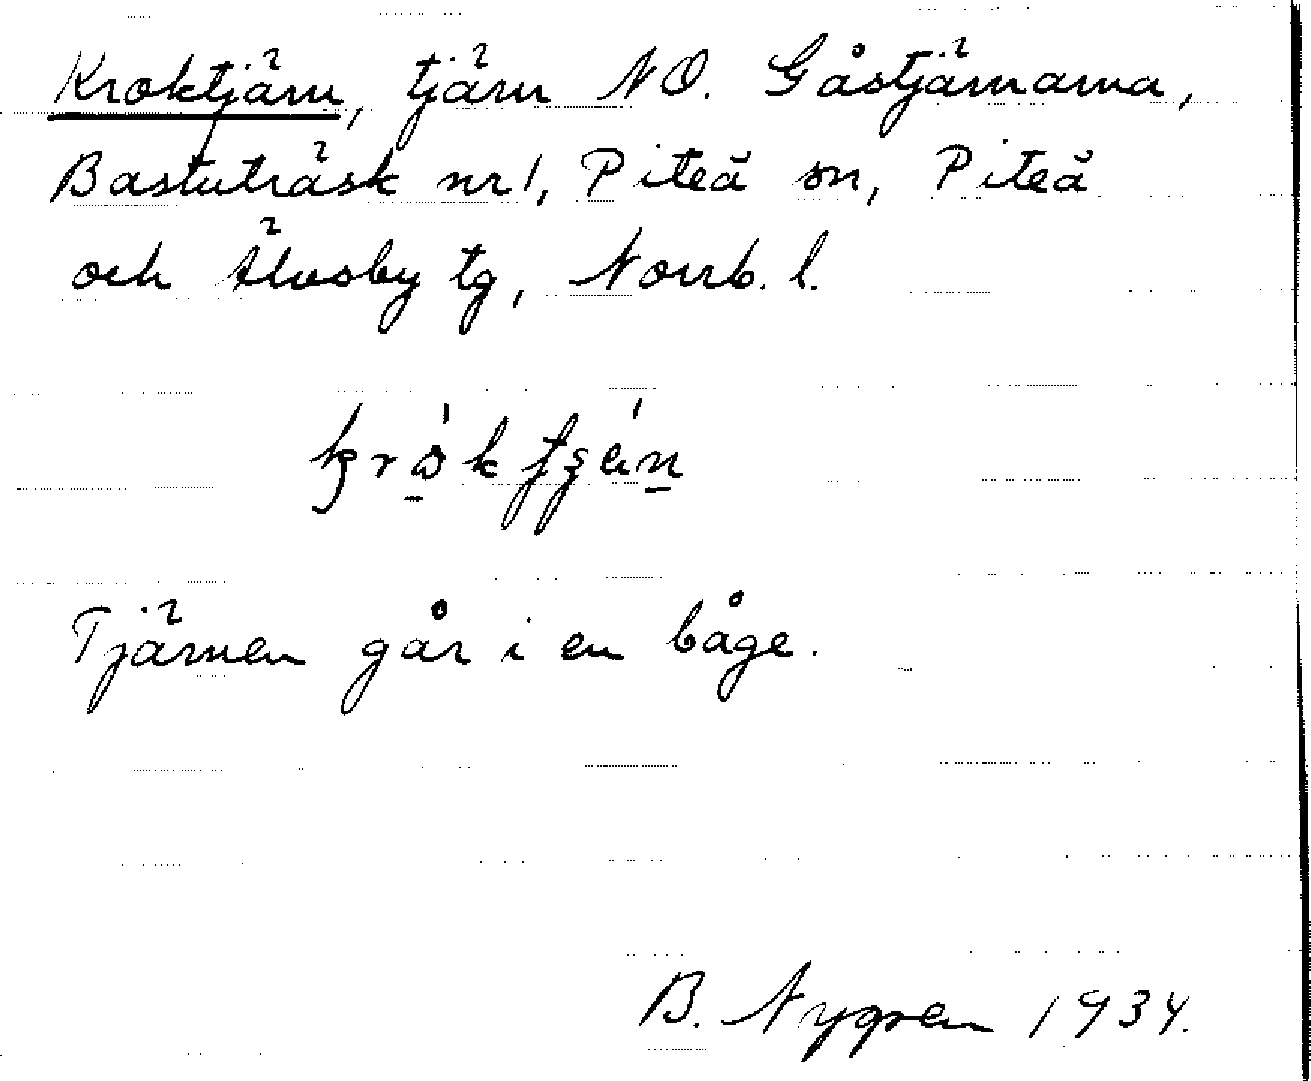 Kroktjärn, tjärn NO. Gåstjärnarna,
Bastuträsk nr 1, Piteå sn, Piteå
och Älvsby tg, Norrb. l.
Tjärnen går i en båge.
B. Nygren 1934.